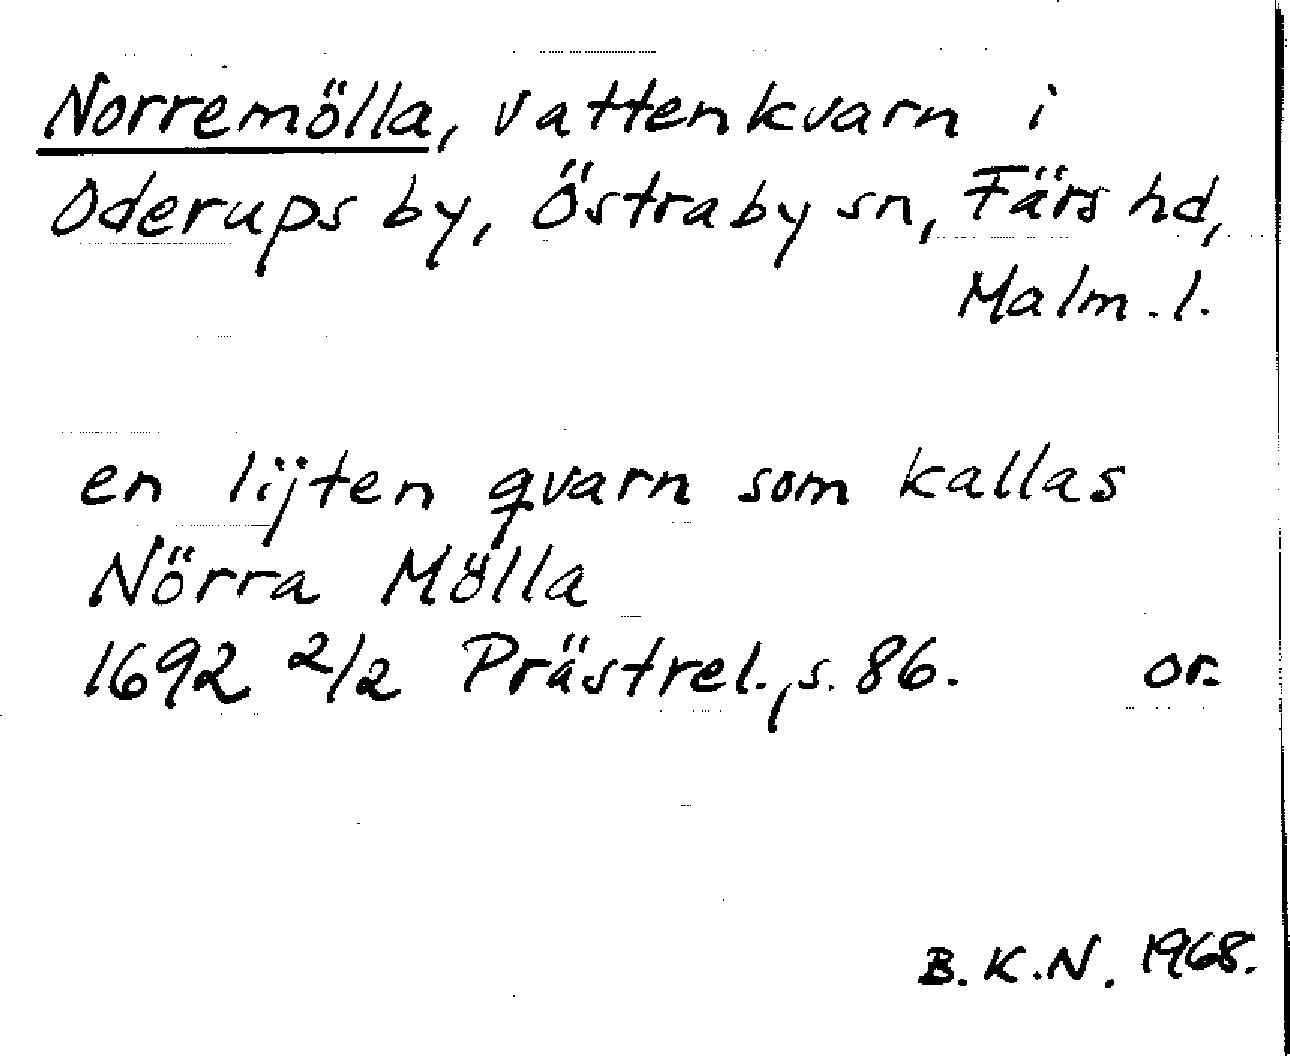 Norremölla, vattenkvarn i
Oderups by, Östraby sn, Färs hd,
Malm. l.
en lijten qvarn som kallas
Nörra Mölla
1692 2/2 Prästrel., s. 86. or.
B. K. N. 1968.